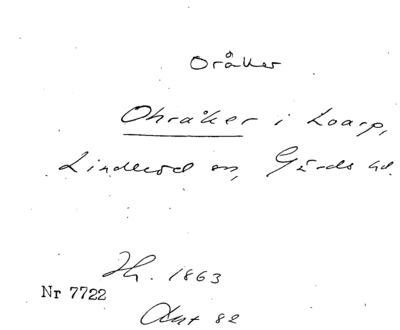 Oråker
Ohråker i Loarp,
Linderöd sn, Gärds hd.
Hr. 1863
Nr 7722
Akt 82